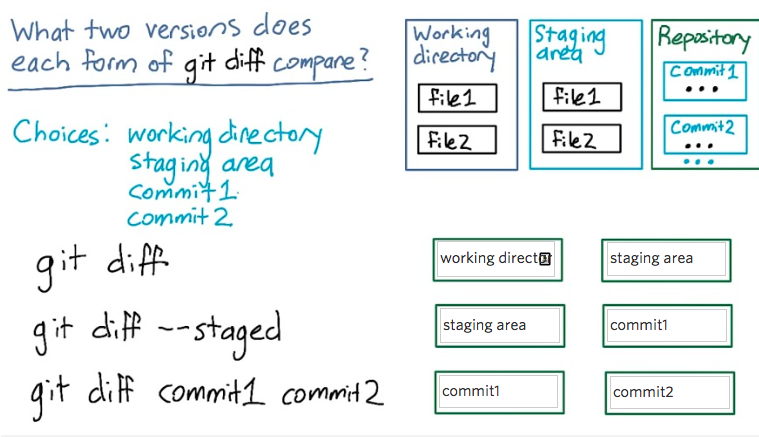 What two versions does
each form of git diff compare?
Choices: working directory
staging area
commit1
commit2
Working
directory
file1
file2
Staging
area
file1
file2
Repository
Commit1
Commit2
git diff
working director
staging area
git diff --staged
staging area
commit1
git diff commit1 commit2
commit1
commit2